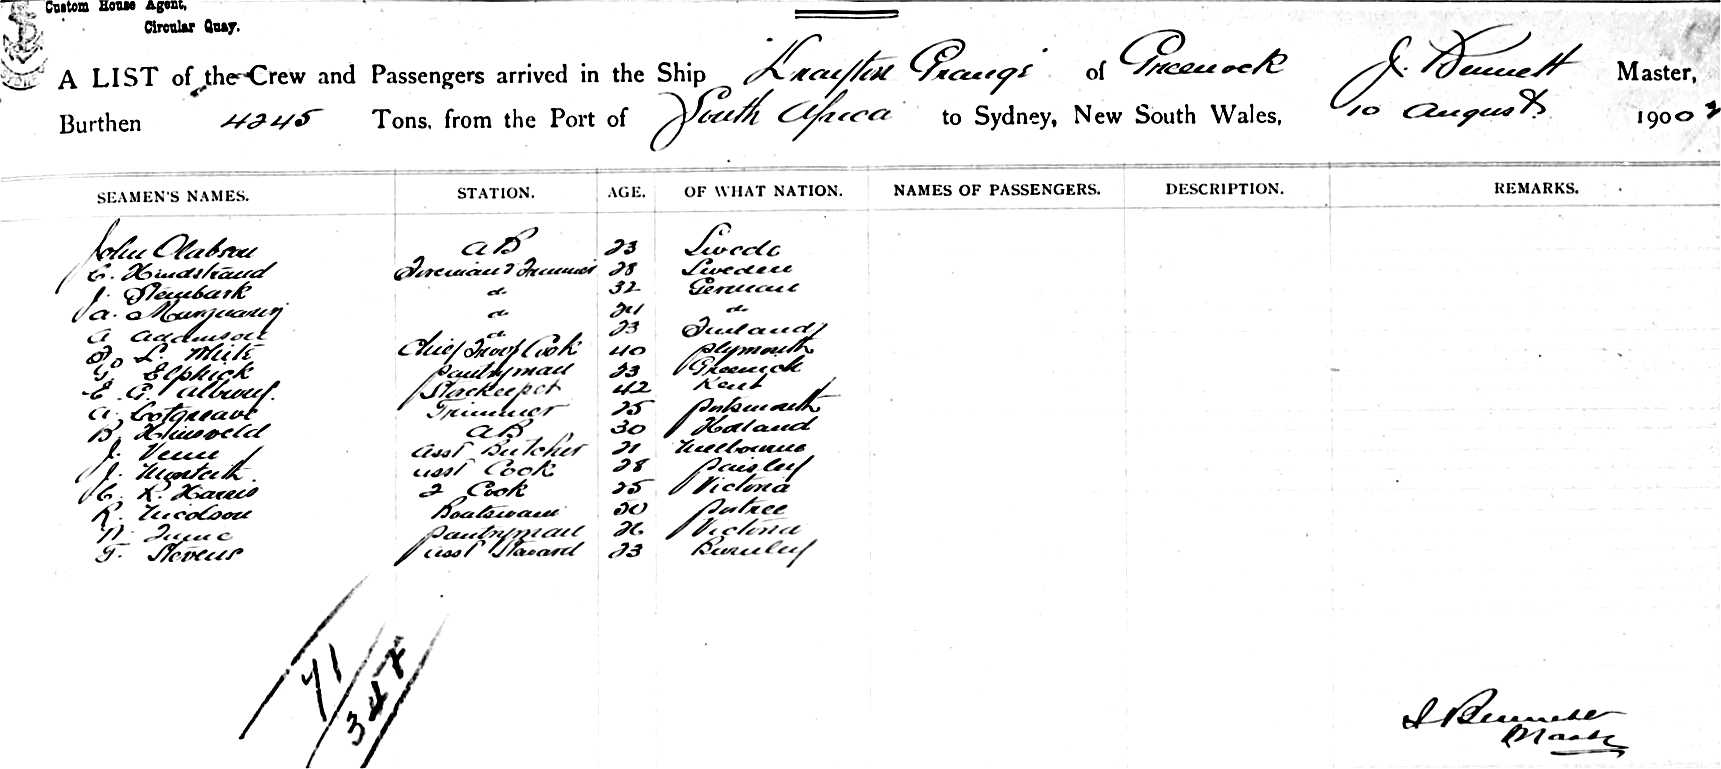 Custom House Agent,
Circular Quay.
A LIST of the Crew and Passengers arrived in the Ship Drayton Grange of Greenock J. Bennett Master,
Burthen 4245 Tons, from the Port of South Africa to Sydney, New South Wales, 10 August 1902
SEAMEN'S NAMES. STATION. AGE. OF WHAT NATION. NAMES OF PASSENGERS. DESCRIPTION. REMARKS.
John AB 23 Swede
C. Hindstrand Fireman & Trimmer 28 Sweden
J. Steinbark do 32 German
A. do 24 do
A Adamson do 23 Finland
L. White Chief Troop Cook 40 Plymouth
G. Elphick Pantryman 23 Greenock
E. G. Storekeeper 42 Kent
A. Cotgreave Trimmer 25 Portsmouth
B. AB 30 Holland
J. Asst Butcher 21 Melbourne
J. Monteith Asst Cook 28 Paisley
C. R. Harris 2 Cook 25 Victoria
R. Nicolson Boatswain 50 Portree
Pantryman 26 Victoria
F. Stevens Asst Steward 23 Burnley
71
347
J Bennett
Master